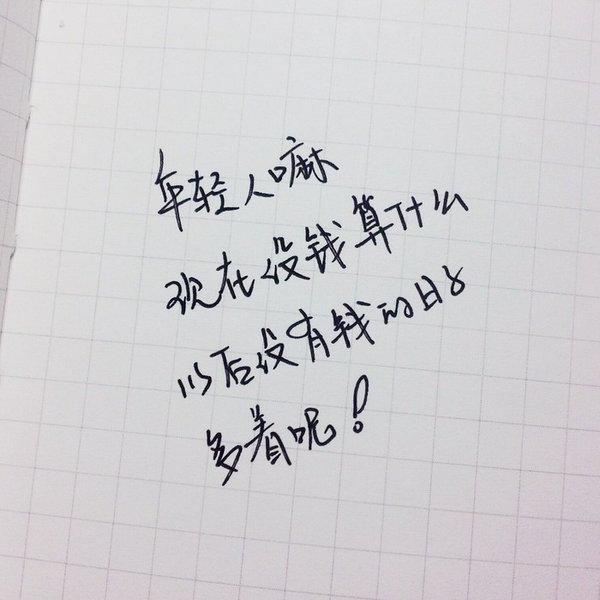 年轻人嘛
现在没钱算什么
以后没有钱的日子
多着呢！